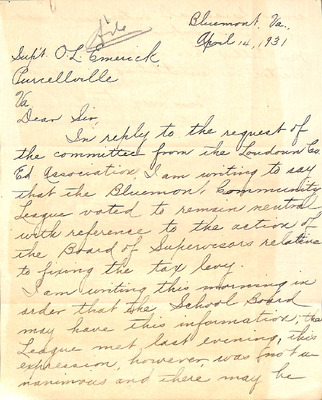 File
Bluemont, Va.,
April 14, 1931
Sup't. O.L. Emerick,
Purcellville
Va
Dear Sir,
In reply to the request of
the committee from the Loudoun Co.
Ed Association, I am writing to say
that the Bluemont Community
League voted to remain neutral
with reference to the action of
the Board of Supervisors relative
to fixing the tax levy.
I am writing this morning in
order that the School Board
may have this information, the
League met last evening, this
expression, however, was not u-
nanimous and there may be